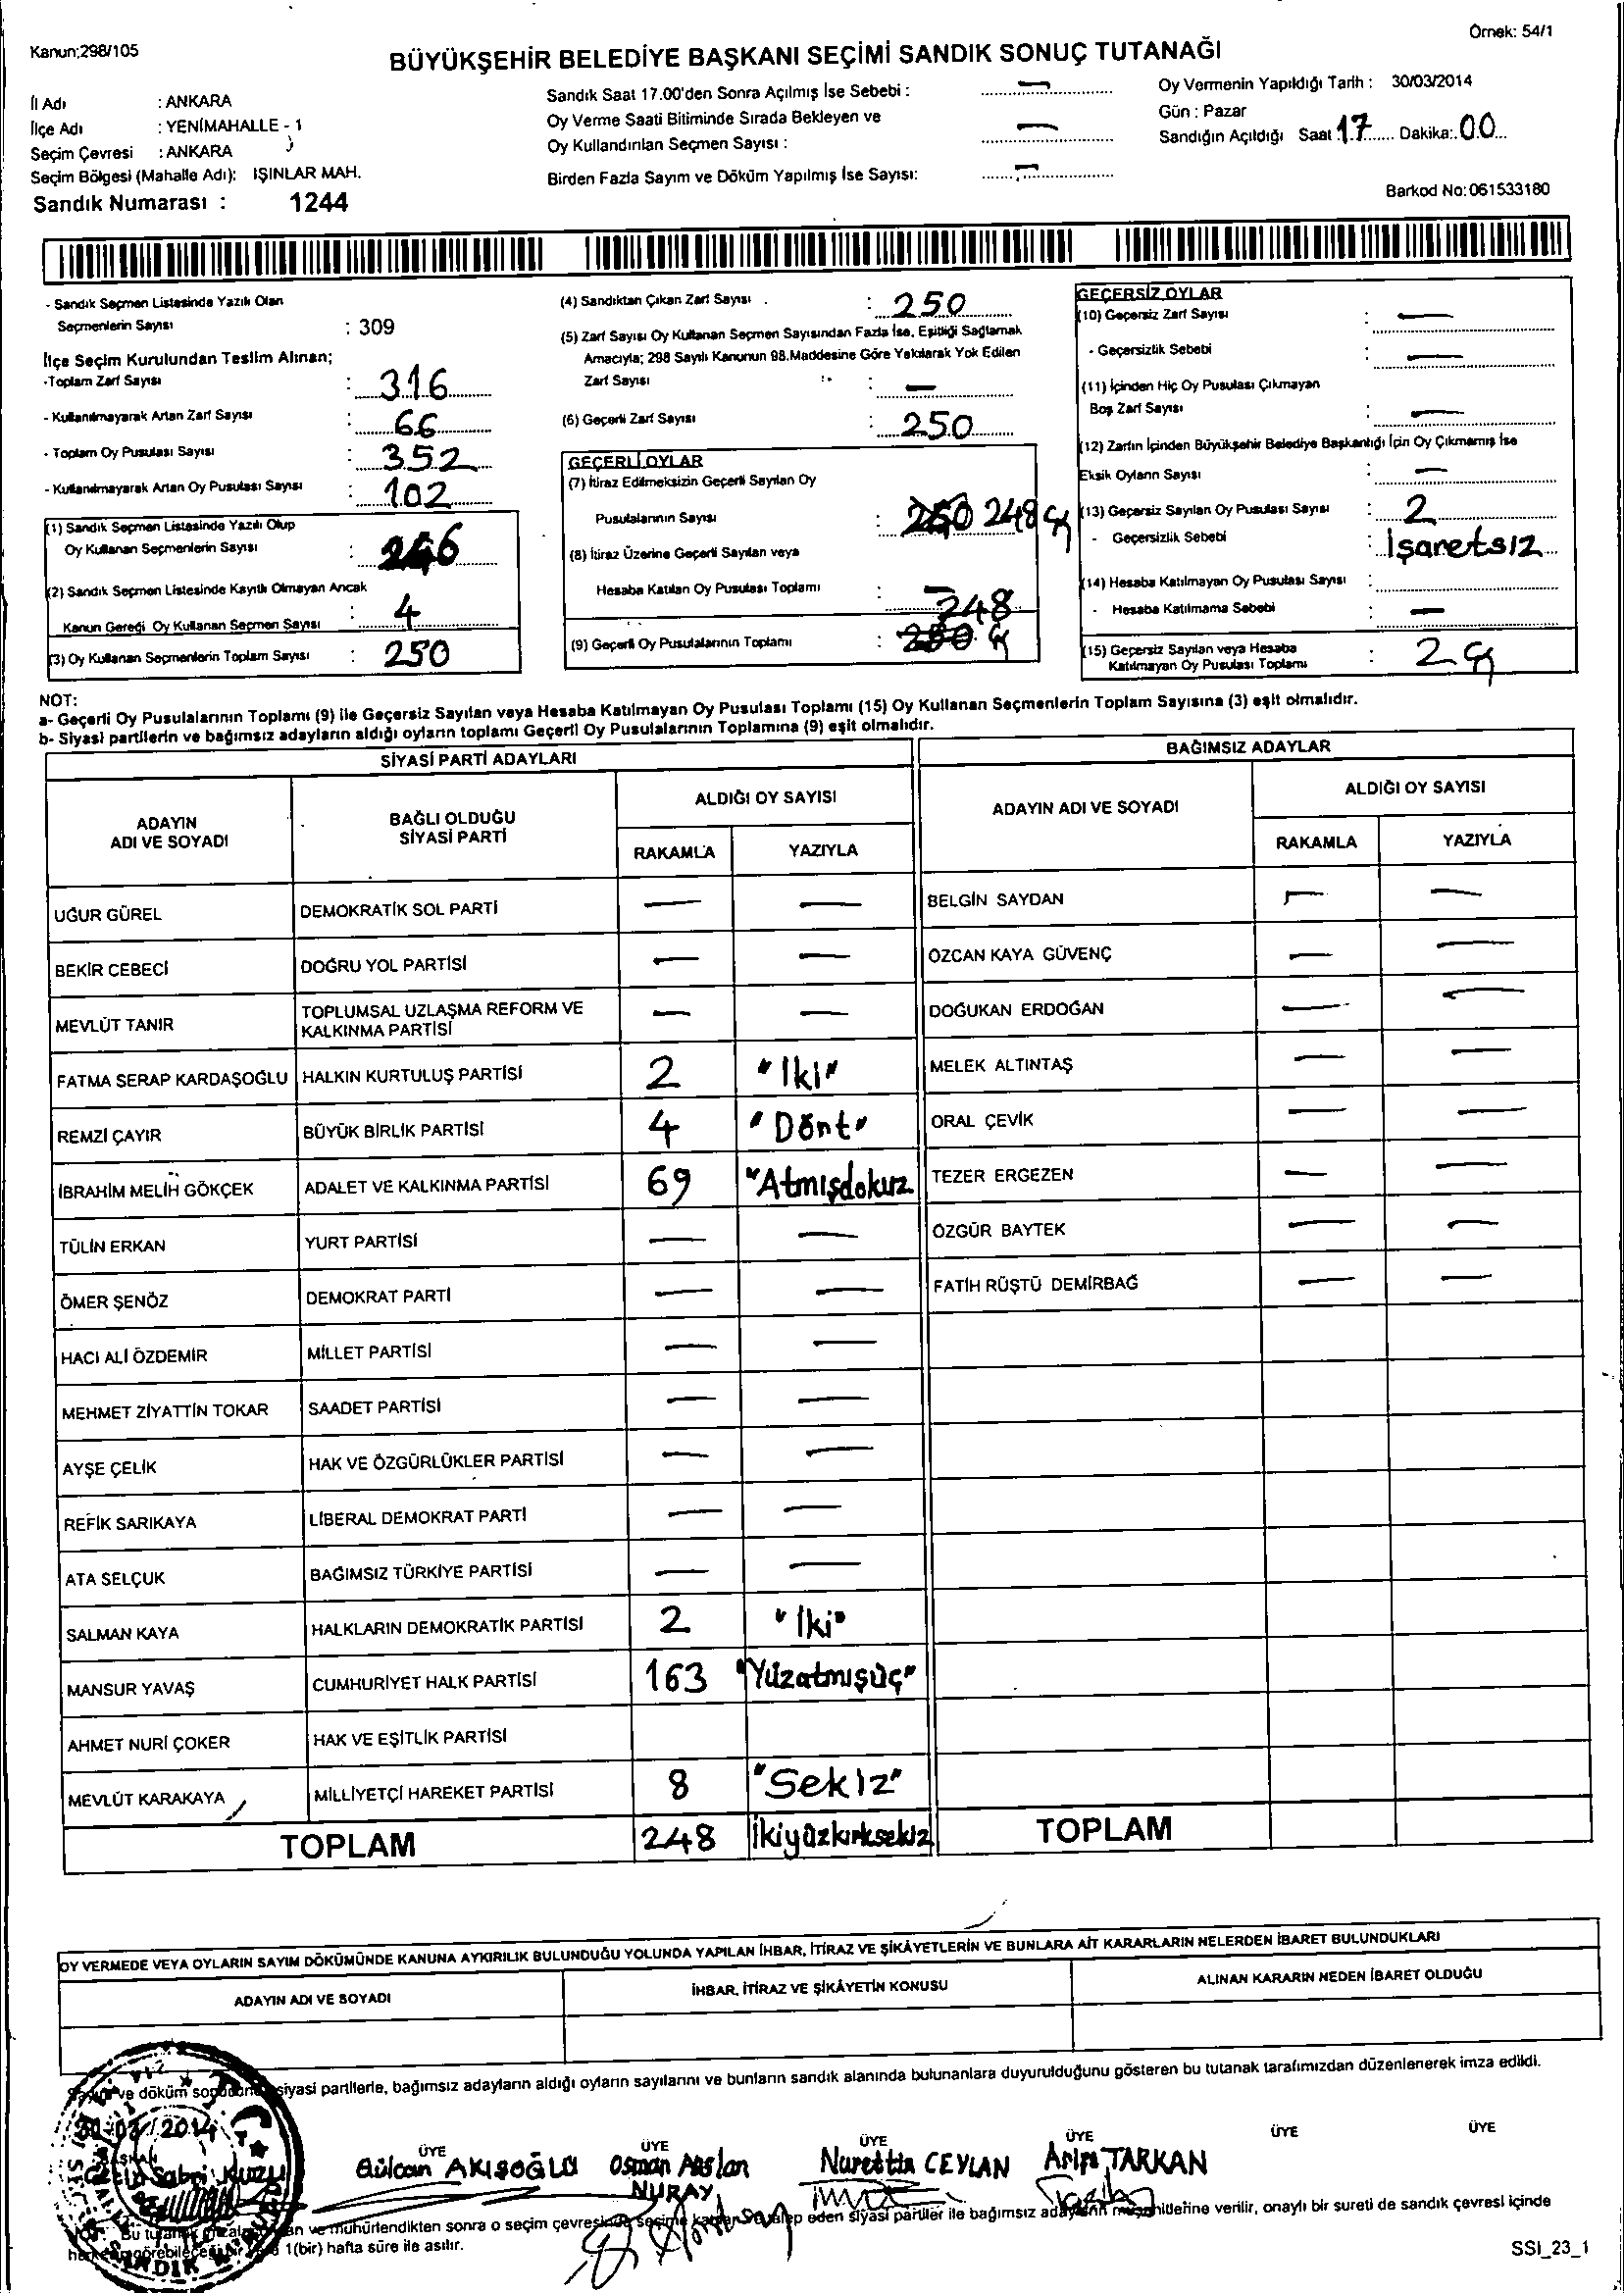 Kanun:298/105
Örnek: 54/1
BÜYÜKŞEHİR BELEDİYE BAŞKANI SEÇİMİ SANDIK SONUÇ TUTANAĞI
İl Adı : ANKARA
İlçe Adı : YENİMAHALLE - 1
Seçim Çevresi : ANKARA
Seçim Bölgesi (Mahalle Adı): IŞINLAR MAH.
Sandık Numarası : 1244
Sandık Saat 17.00'den Sonra Açılmış İse Sebebi : —
Oy Verme Saati Bitiminde Sırada Bekleyen ve
Oy Kullandırılan Seçmen Sayısı : —
Birden Fazla Sayım ve Döküm Yapılmış İse Sayısı: —
Oy Vermenin Yapıldığı Tarih : 30/03/2014
Gün : Pazar
Sandığın Açıldığı Saat 17 Dakika: 00
Barkod No:061533180
- Sandık Seçmen Listesinde Yazılı Olan
Seçmenlerin Sayısı : 309
İlçe Seçim Kurulundan Teslim Alınan;
-Toplam Zarf Sayısı : 316
- Kullanılmayarak Artan Zarf Sayısı : 66
- Toplam Oy Pusulası Sayısı : 352
- Kullanılmayarak Artan Oy Pusulası Sayısı : 102
(1) Sandık Seçmen Listesinde Yazılı Olup
Oy Kullanan Seçmenlerin Sayısı : 246
(2) Sandık Seçmen Listesinde Kayıtlı Olmayan Ancak
Kanun Gereği Oy Kullanan Seçmen Sayısı : 4
(3) Oy Kullanan Seçmenlerin Toplam Sayısı : 250
(4) Sandıktan Çıkan Zarf Sayısı : 250
(5) Zarf Sayısı Oy Kullanan Seçmen Sayısından Fazla İse, Eşitliği Sağlamak
Amacıyla; 298 Sayılı Kanunun 98.Maddesine Göre Yakılarak Yok Edilen
Zarf Sayısı : —
(6) Geçerli Zarf Sayısı : 250
GEÇERLİ OYLAR
(7) İtiraz Edilmeksizin Geçerli Sayılan Oy
Pusulalarının Sayısı : 250 248
(8) İtiraz Üzerine Geçerli Sayılan veya
Hesaba Katılan Oy Pusulası Toplamı : —
248
(9) Geçerli Oy Pusulalarının Toplamı : 250
GEÇERSİZ OYLAR
(10) Geçersiz Zarf Sayısı : —
- Geçersizlik Sebebi : —
(11) İçinden Hiç Oy Pusulası Çıkmayan
Boş Zarf Sayısı : —
(12) Zarfın İçinden Büyükşehir Belediye Başkanlığı İçin Oy Çıkmamış İse
Eksik Oyların Sayısı : —
(13) Geçersiz Sayılan Oy Pusulası Sayısı : 2
- Geçersizlik Sebebi : İşaretsiz
(14) Hesaba Katılmayan Oy Pusulası Sayısı :
- Hesaba Katılmama Sebebi : —
(15) Geçersiz Sayılan veya Hesaba
Katılmayan Oy Pusulası Toplamı : 2
NOT:
a- Geçerli Oy Pusulalarının Toplamı (9) ile Geçersiz Sayılan veya Hesaba Katılmayan Oy Pusulası Toplamı (15) Oy Kullanan Seçmenlerin Toplam Sayısına (3) eşit olmalıdır.
b- Siyasi partilerin ve bağımsız adayların aldığı oyların toplamı Geçerli Oy Pusulalarının Toplamına (9) eşit olmalıdır.
SİYASİ PARTİ ADAYLARI
ADAYIN
ADI VE SOYADI
BAĞLI OLDUĞU
SİYASİ PARTİ
ALDIĞI OY SAYISI
RAKAMLA YAZIYLA
UĞUR GÜREL DEMOKRATİK SOL PARTİ — —
BEKİR CEBECİ DOĞRU YOL PARTİSİ — —
MEVLÜT TANIR TOPLUMSAL UZLAŞMA REFORM VE
KALKINMA PARTİSİ — —
FATMA SERAP KARDAŞOĞLU HALKIN KURTULUŞ PARTİSİ 2 "İki"
REMZİ ÇAYIR BÜYÜK BİRLİK PARTİSİ 4 "Dört"
İBRAHİM MELİH GÖKÇEK ADALET VE KALKINMA PARTİSİ 69 "Atmışdokuz
TÜLİN ERKAN YURT PARTİSİ — —
ÖMER ŞENÖZ DEMOKRAT PARTİ — —
HACI ALİ ÖZDEMİR MİLLET PARTİSİ — —
MEHMET ZİYATTİN TOKAR SAADET PARTİSİ — —
AYŞE ÇELİK HAK VE ÖZGÜRLÜKLER PARTİSİ — —
REFİK SARIKAYA LİBERAL DEMOKRAT PARTİ — —
ATA SELÇUK BAĞIMSIZ TÜRKİYE PARTİSİ — —
SALMAN KAYA HALKLARIN DEMOKRATİK PARTİSİ 2 "İki"
MANSUR YAVAŞ CUMHURİYET HALK PARTİSİ 163 "Yüzatmışüç"
AHMET NURİ ÇOKER HAK VE EŞİTLİK PARTİSİ
MEVLÜT KARAKAYA MİLLİYETÇİ HAREKET PARTİSİ 8 "Sekiz"
TOPLAM 248 İkiyüzkırksekiz
BAĞIMSIZ ADAYLAR
ADAYIN ADI VE SOYADI
ALDIĞI OY SAYISI
RAKAMLA YAZIYLA
BELGİN SAYDAN — —
ÖZCAN KAYA GÜVENÇ — —
DOĞUKAN ERDOĞAN — —
MELEK ALTINTAŞ — —
ORAL ÇEVİK — —
TEZER ERGEZEN — —
ÖZGÜR BAYTEK — —
FATİH RÜŞTÜ DEMİRBAĞ — —
TOPLAM
OY VERMEDE VEYA OYLARIN SAYIM DÖKÜMÜNDE KANUNA AYKIRILIK BULUNDUĞU YOLUNDA YAPILAN İHBAR, İTİRAZ VE ŞİKÂYETLERİN VE BUNLARA AİT KARARLARIN NELERDEN İBARET BULUNDUKLARI
ADAYIN ADI VE SOYADI
İHBAR, İTİRAZ VE ŞİKÂYETİN KONUSU
ALINAN KARARIN NEDEN İBARET OLDUĞU
ve döküm siyasi partilerle, bağımsız adayların aldığı oyların sayılarını ve bunların sandık alanında bulunanlara duyurulduğunu gösteren bu tutanak tarafımızdan düzenlenerek imza edildi.
30/03/2014
BAŞKAN
Sabri Kuzu
ÜYE ÜYE ÜYE ÜYE ÜYE ÜYE
Gülcan AKIŞOĞLU Osman Arslan Nurettin CEYLAN Arif TARKAN
NURAY
Bu mühürlendikten sonra o seçim eden siyasi partiler ile bağımsız verilir, onaylı bir sureti de sandık çevresi içinde
1(bir) hafta süre ile asılır.
SSI_23_1